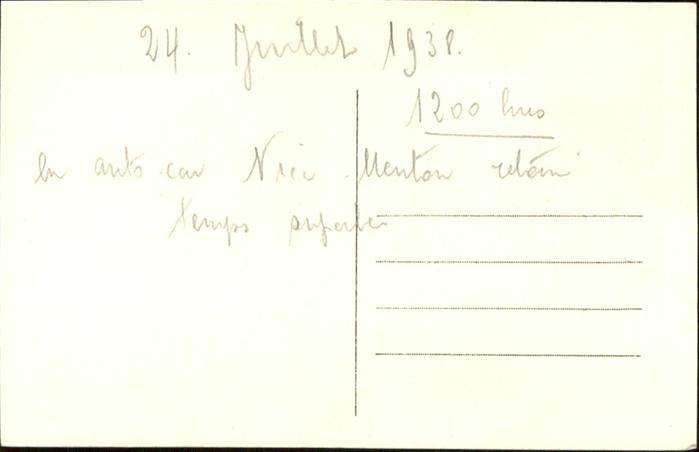 24. Juillet 1938.
1200 hrs
En auto car Nice Menton
Temps superbe